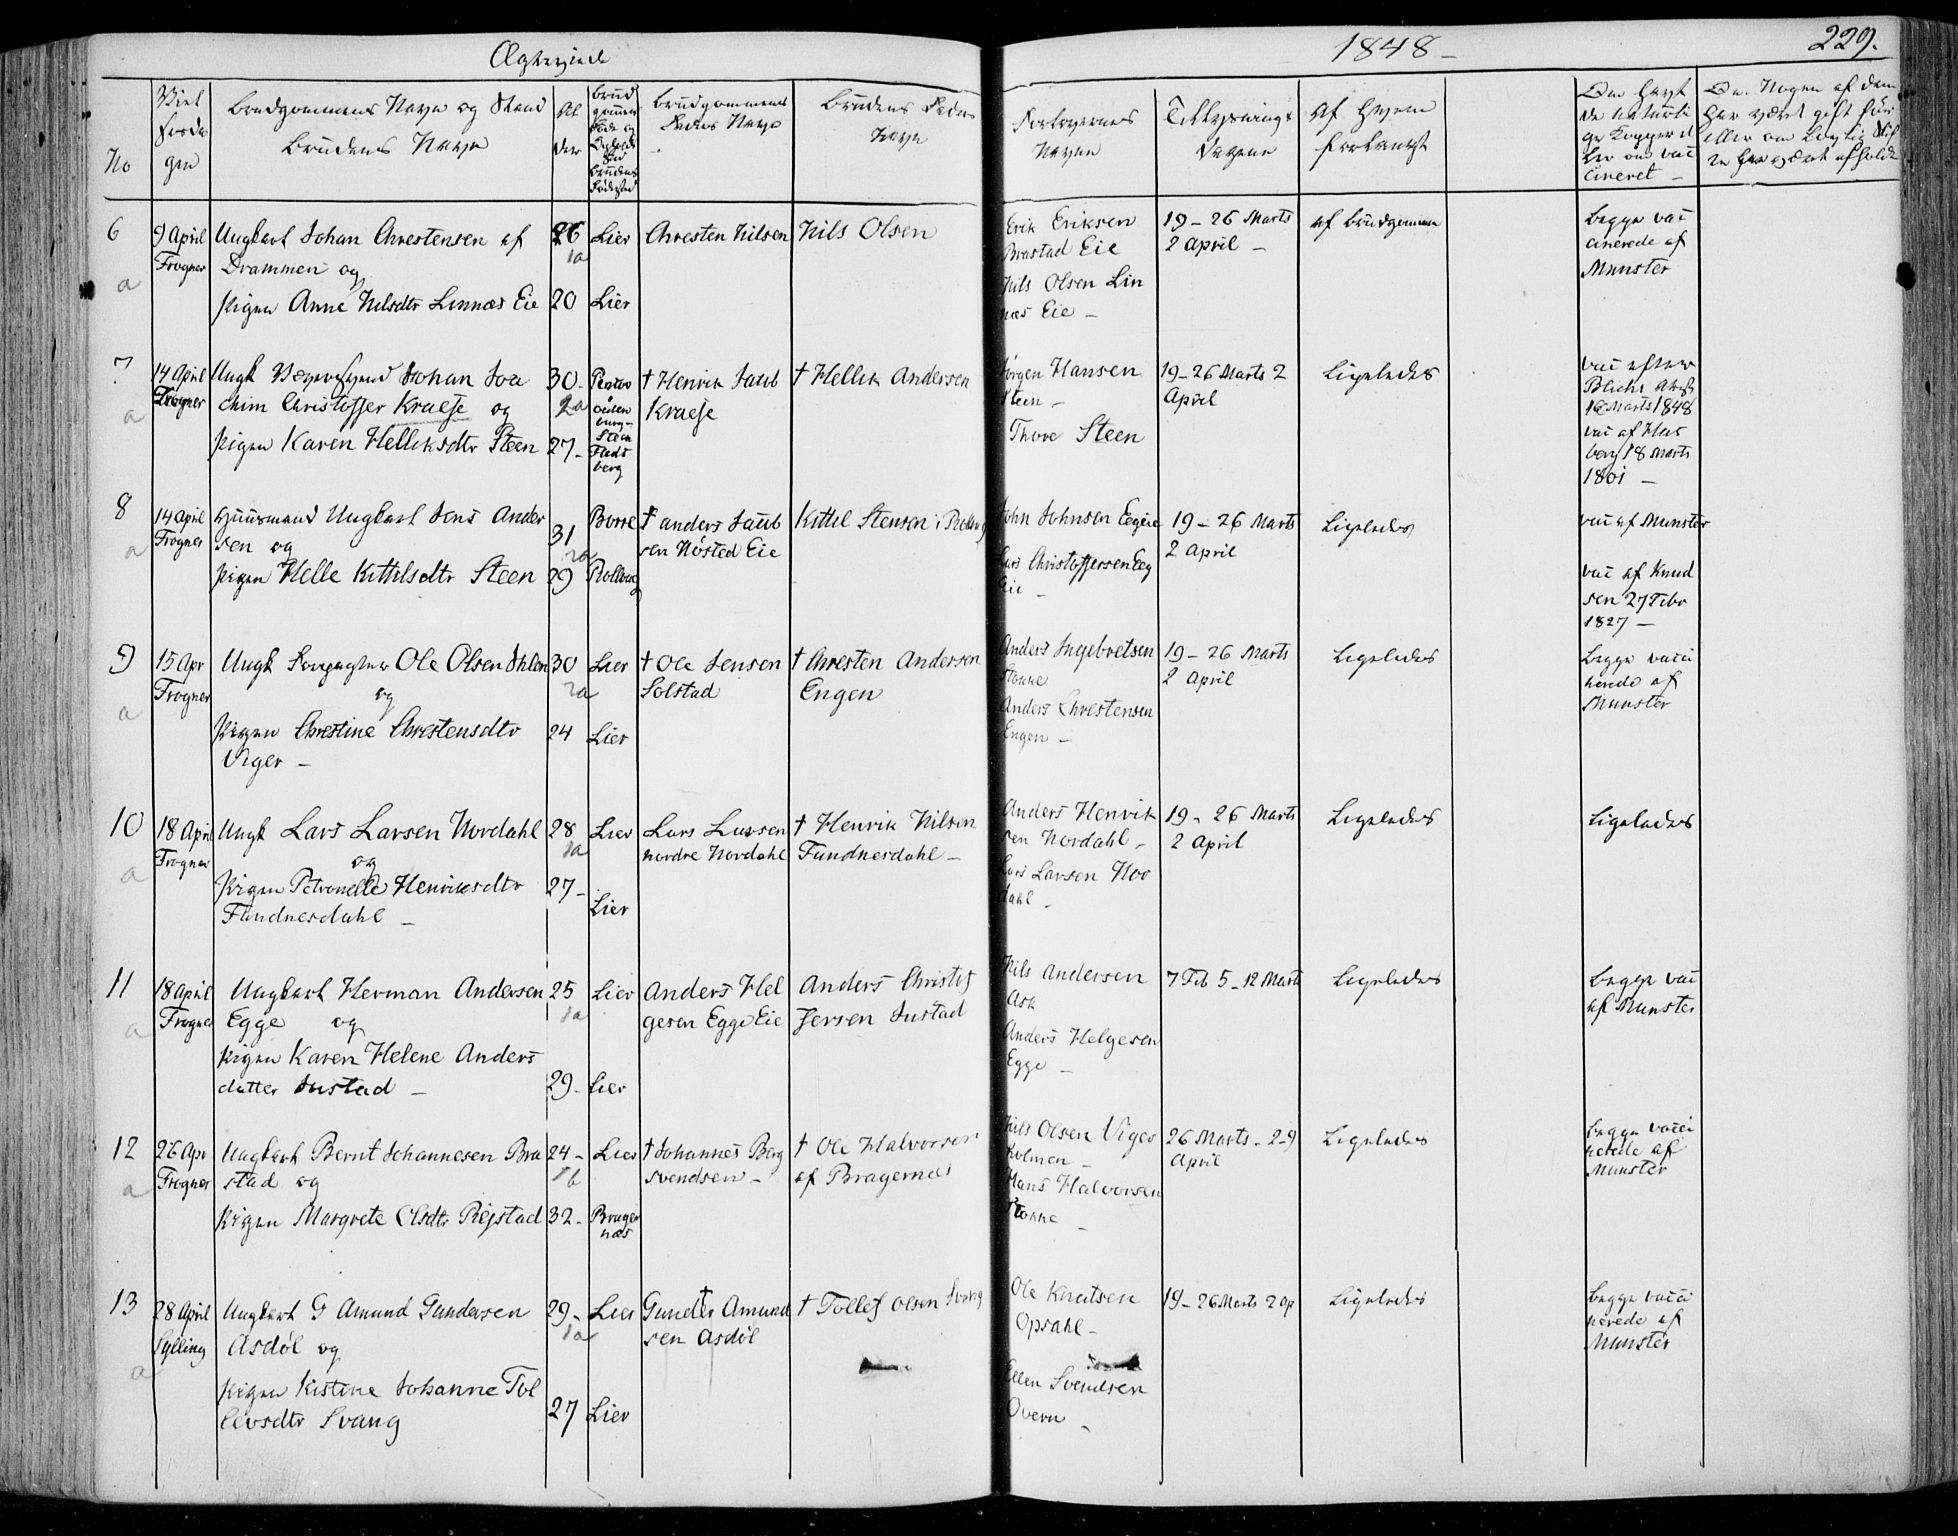 Ægteviede
1848 -
229.
No
Viel
sesda
gen
Brudgommens Navn og Stand
Brudens Navn
Al
der
Brudgommens
Faders Navn
Brudens Faders
Navn
Forlovernes
Navne
Tillysnings
Dagene
Af Hvem
forlangt
6
9 April
Frogner
a
Ungkarl Johan Chrestensen af
Drammen og
Pigen Anne Nilsdtr Linnæs Eie
26
1a
20
Lier
Lier
Chresten Nilsen
Nils Olsen
Erik Eriksen
Brastad Eie
Nils Olsen Lin
næs Eie -
19 - 26 Marts
2 April -
af Brudgommen
Begge vac
cinerede af
Munster
7
14 April
Frogner
a
Ungk Johan Joa
chim Christoffer Kraefe og
Pigen Karen Helliksdtr Steen
30 -
2a
27 -
Steen
Flads
berg
† Henrik Jacob
Kraefe
† Hellik Andersen
Jørgen Hansen
Steen -
Thore Steen
19 - 26 Marts 2
April
Ligeledes
vac efter
16 Marts 1848
18 Marts
8
14 April
Frogner
a
Huusmand Ungkarl Jens Ander
sen og
Pigen Helle Kittilsdtr Steen
31
2a
29
Borre
Rollaug
† Anders Jacob
sen Høsted Eie
Kittil Stensen i Rollaug
John Johnsen Eegeie
Lars Christoffersen Eeg
Eie -
19 - 26 Marts
2 April
Ligeledes
vac af Munster
vac af Knud
sen 27 Febr
1827 -
9
15 Apr
Frogner
a
Ungk Ole Olsen Ihlen
og
Pigen Chrestine Chrestensdtr
Viger -
30
2a
24
Lier
Lier
† Ole Jensen
Solstad
† Chresten Andersen
Engen
Anders Ingebretsen
Stonne
Anders Chrestensen
Engen -
19 - 26 Marts
2 April
Ligeledes
Begge vacci
nerede af
Munster
10
18 April
Frogner
a
Ungk Lars Larsen Nordahl
og
Pigen Petronelle Henriksdtr
Fundnesdahl -
28
1a
27 -
Lier
Lier
Lars Larsen
nordre Nordahl
† Henrik Nilsen
Fundnesdahl -
Anders Henrik
sen Nordahl -
Lars Larsen Nor
dahl -
19 - 26 Marts
2 April
Ligeledes
Ligeledes
11
18 April
Frogner
a
Ungkarl Herman Andersen
Egge og
Pigen Karen Helene Anders
datter Justad -
25
1a
29 -
Lier
Lier
Anders Hel
gesen Egge Eie
Anders Christof
fersen Justad
Nils Andersen
Ask
Anders Helgesen
Egge -
7 Feb 5 - 12 Marts
Ligeledes
Begge vac
af Munster
12
26 Apr
Frogner
a
Ungkarl Bernt Johannesen Bra
stad og
Pigen Margrete Olsdtr Rejstad
24 -
1b
32 -
Lier
Brager
næs
† Johannes Berg
svendsen -
† Ole Halvorsen
af Bragernæs
Nils Olsen Viger
Kolmen -
Hans Halvorsen
Stonne -
26 Marts - 2 - 9
April
Ligeledes
Begge vacci
nerede af
Munster
13
28 April
Sylling
a
Ungkarl G Amund Gundersen
Asdøl og
Pigen Kistine Johanne Tol
levsdtr Svang
29 -
1a
27
Lier
Lier
† Gunder Amund
sen Asdøl
† Tollef Olsen Svang
Ole Knutsen
Opsahl -
Ellen Svendsen
Overn -
19 - 26 Marts 2 Ap
Ligeledes
Begge vacci
nerede af
Munster